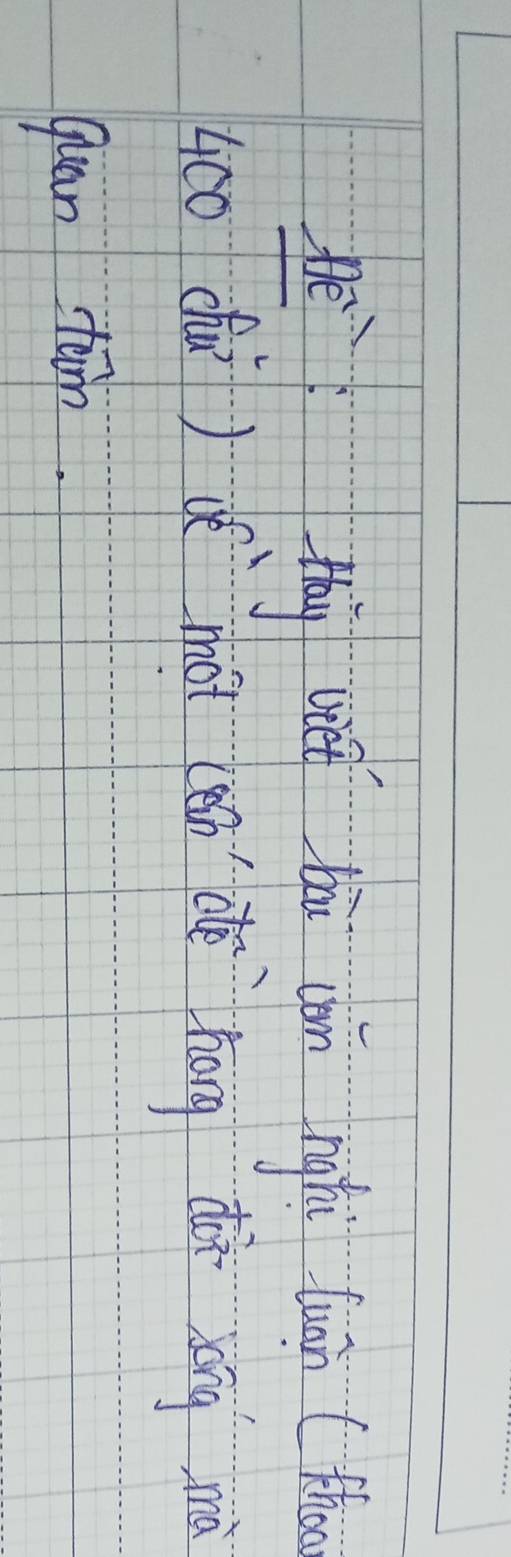 Đề : Hãy viết bài văn nghị luận ( khoản
400 chữ ) về một vấn đề trong đời sống mà
quan tâm .